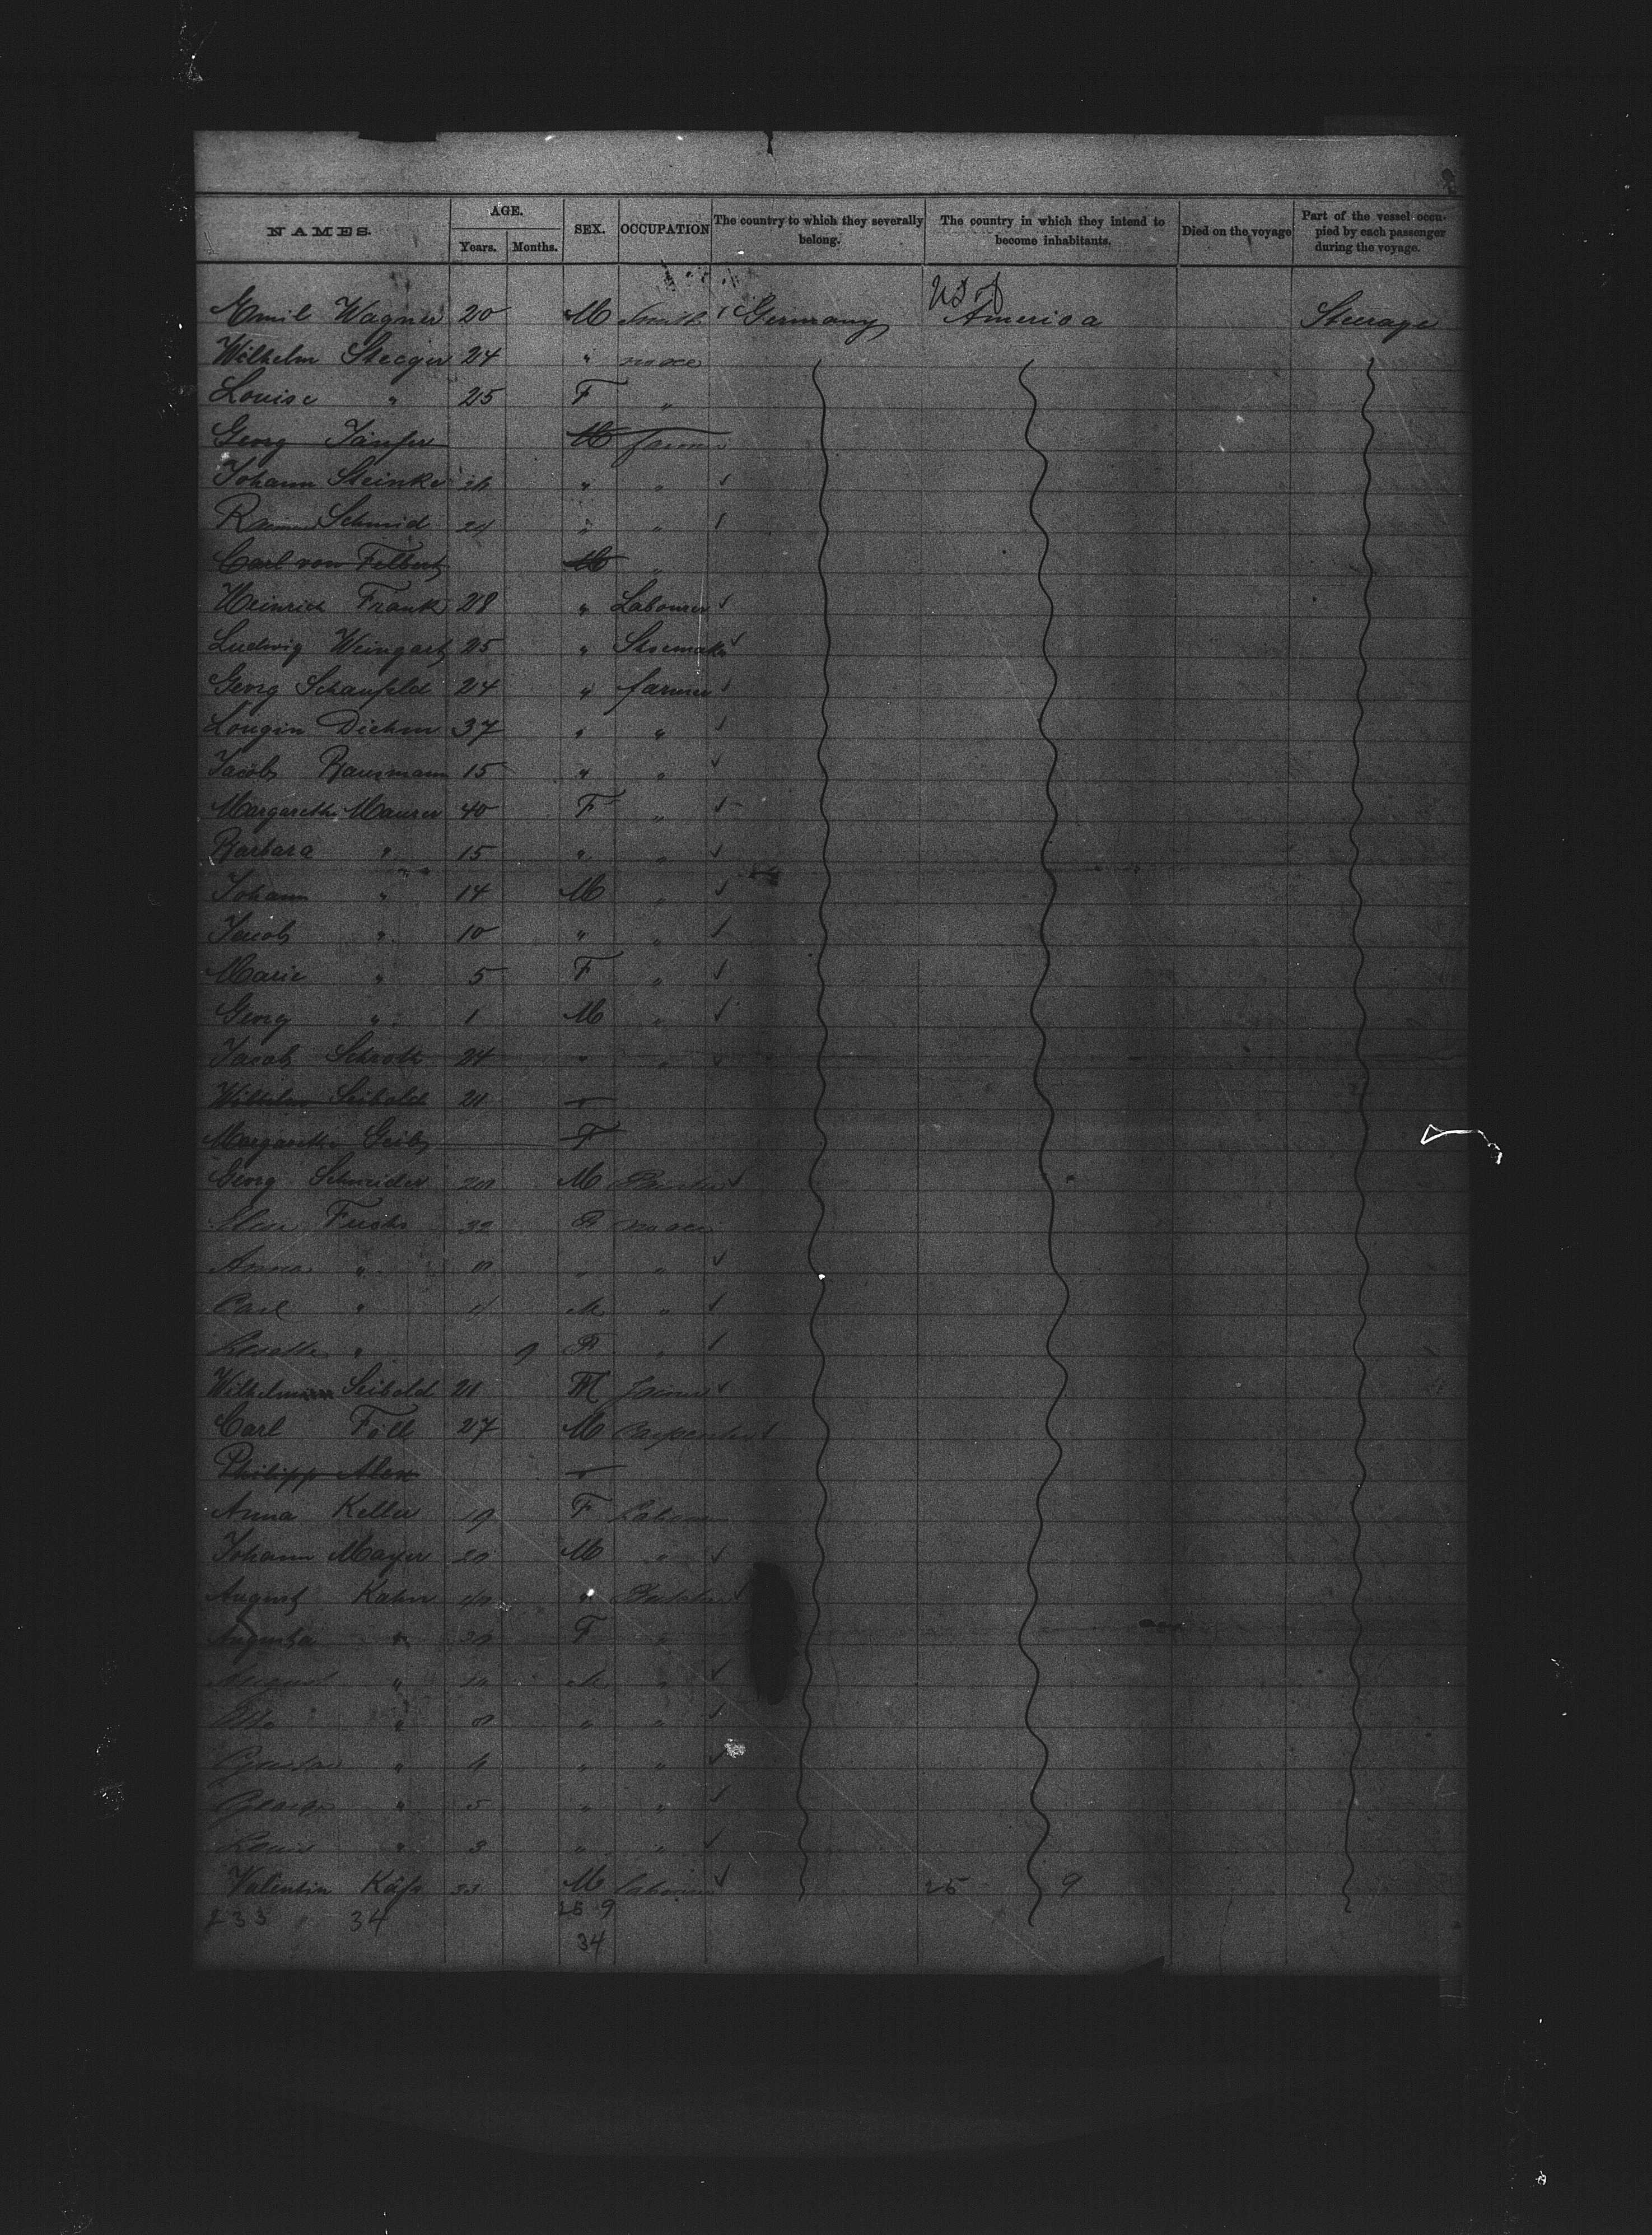 NAMES. AGE. Years. Months. SEX. OCCUPATION The country to which they severally belong. The country in which they intend to become inhabitants. Died on the voyage Part of the vessel occupied by each passenger during the voyage.
USA
Emil Wagner 20 M Smith Germany America Steerage
Wilhelm Steeger 24 " none
Louise " 25 F "
Georg M farmer
Johann Steinke " "
Schmid 24 " "
Carl von Felbert M "
Heinrich Frank 28 " Labourer
Ludwig Weingart 25 " Shoemaker
Georg Schaufeld 24 " farmer
Longin Diehm 37 " "
Jacob Bausmann 15 " "
Margarethe Maurer 40 F "
Barbara " 15 " "
Johann " 14 M "
Jacob " 10 " "
Marie " 5 F "
Georg " 1 M "
Jacob Schroth 24 " "
Wilhelm Seibold 21 "
Margaretha Geib F
Georg Schneider M
Fuchs 32 F none
Anna " " "
Carl " 4 M "
" 9 F "
Wilhelm Seibold 21 M Joiner
Carl Föll 27 M Carpenter
Philipp Alex "
Anna Keller 19 F Labourer
Johann Mayer 20 M "
August Kahn "
Augusta " F "
August " M "
Otto " 8 " "
Gustav " " "
George " 5 " "
Louis " 3 " "
Valentin Käfs 23 M labourer 25 9
233 34 25 9
34